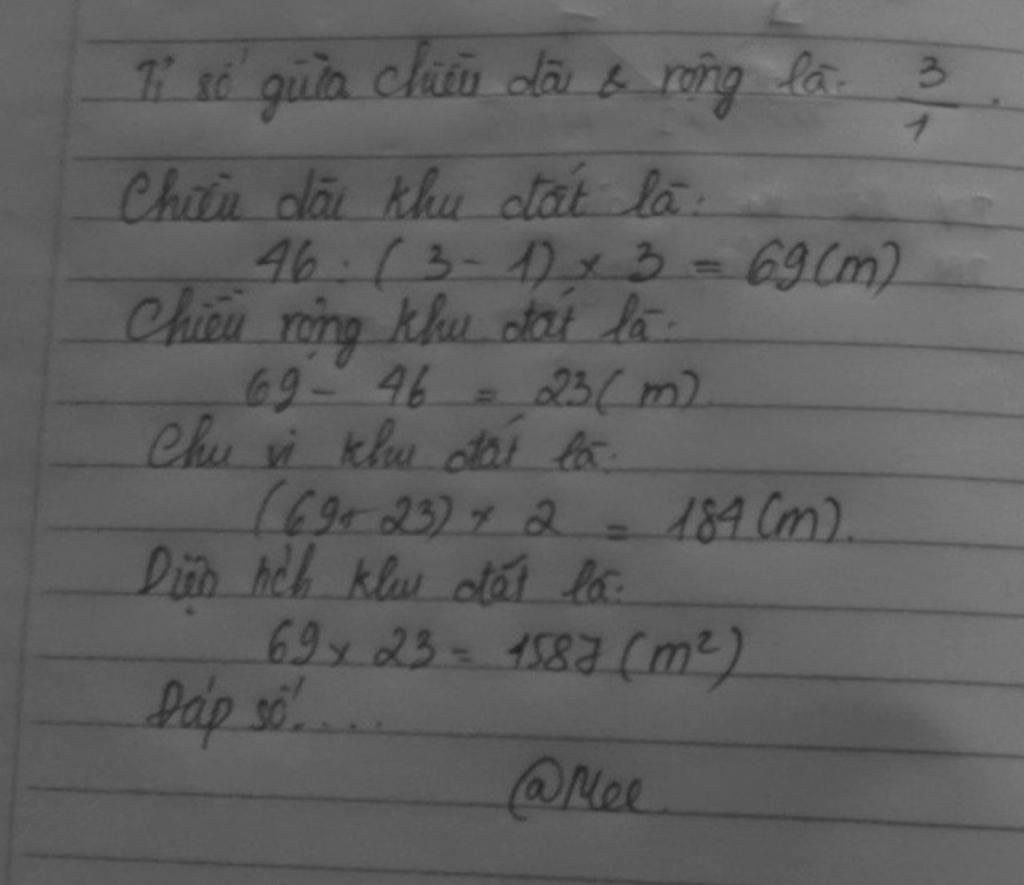 Tỉ số giữa chiều dài & rộng là: 3/1.
Chiều dài khu đất là:
46 : (3 - 1) x 3 = 69 (m)
Chiều rộng khu đất là:
69 - 46 = 23 (m)
Chu vi khu đất là:
(69 + 23) x 2 = 184 (m).
Diện tích khu đất là:
69 x 23 = 1587 (m²)
Đáp số.....
@Mee